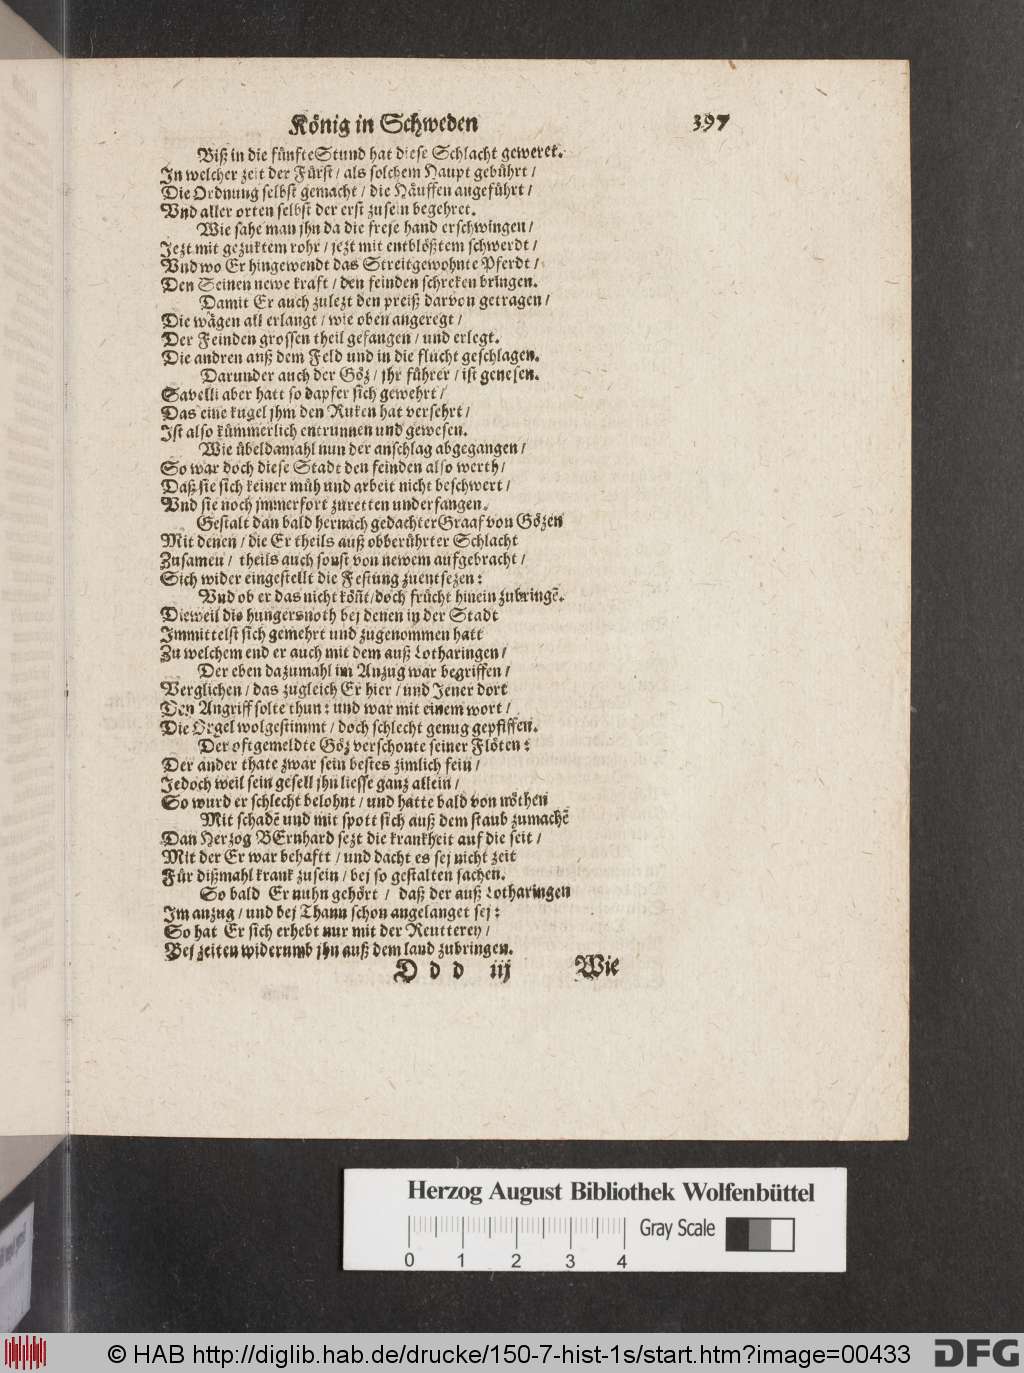 König in Schweden 397
Biß in die fünfte Stund hat diese Schlacht geweret.
In welcher zeit der Fürst / als solchem Haupt gebührt /
Die Ordnung selbst gemacht / die Häuffen angeführt /
Vnd aller orten selbst der erst zusein begehret.
Wie sahe man jhn da die freje hand erschwingen /
Jezt mit gezuktem rohr / jezt mit entblößtem schwerdt /
Vnd wo Er hingewendt das Streitgewohnte Pferdt /
Den Seinen newe kraft / den feinden schreken bringen.
Damit Er auch zulezt den preiß darvon getragen /
Die wägen all erlangt / wie oben angeregt /
Der Feinden grossen theil gefangen / und erlegt.
Die andren auß dem Feld und in die flucht geschlagen.
Darunder auch der Göz / jhr führer / ist genesen.
Savelli aber hatt so dapfer sich gewehrt /
Das eine kugel jhm den Ruken hat versehrt /
Ist also kümmerlich entrunnen und gewesen.
Wie übeldamahl nun der anschlag abgegangen /
So war doch diese Stadt den feinden also werth /
Daß sie sich keiner müh und arbeit nicht beschwert /
Vnd sie noch jmmerfort zuretten underfangen.
Gestalt dan bald hernach gedachter Graaf von Gözen
Mit denen / die Er theils auß obberührter Schlacht
Zusamen / theils auch sonst von newem aufgebracht /
Sich wider eingestellt die Festung zuentsezen:
Vnd ob er das nicht köñt / doch frücht hinein zubringē.
Dieweil die hungersnoth bej denen in der Stadt
Immittelst sich gemehrt und zugenommen hatt
Zu welchem end er auch mit dem auß Lotharingen /
Der eben dazumahl im Anzug war begriffen /
Verglichen / das zugleich Er hier / und Jener dort
Den Angriff solte thun: und war mit einem wort /
Die Orgel wolgestimmt / doch schlecht genug gepfiffen.
Der oftgemeldte Göz verschonte seiner Flöten:
Der ander thate zwar sein bestes zimlich fein /
Jedoch weil sein gesell jhn liesse ganz allein /
So wurd er schlecht belohnt / und hatte bald von nöthen
Mit schadē und mit spott sich auß dem staub zumachē
Dan Herzog BErnhard sezt die krankheit auf die seit /
Mit der Er war behaftt / und dacht es sej nicht zeit
Für dißmahl krank zusein / bej so gestalten sachen.
So bald Er nuhn gehört / daß der auß Lotharingen
Im anzug / und bej Thann schon angelanget sej:
So hat Er sich erhebt nur mit der Reutterey /
Bej zeiten widerumb jhn auß dem land zubringen.
D d d iij Wie
Herzog August Bibliothek Wolfenbüttel
0 1 2 3 4 Gray Scale
© HAB http://diglib.hab.de/drucke/150-7-hist-1s/start.htm?image=00433 DFG